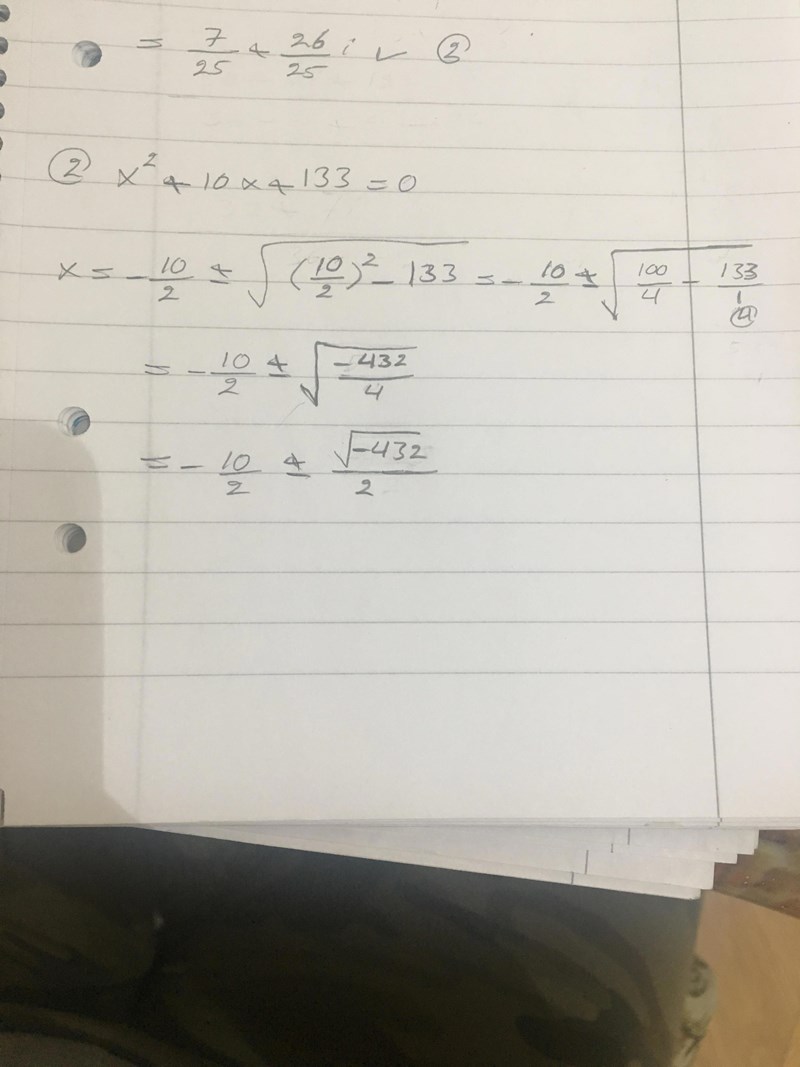 = 7/25 + 26/25 i ✓ ③
② x² + 10x + 133 = 0
x = - 10/2 ± √((10/2)² - 133) = - 10/2 ± √(100/4 - 133/1) ④
= - 10/2 ± √(-432/4)
= - 10/2 ± √-432/2